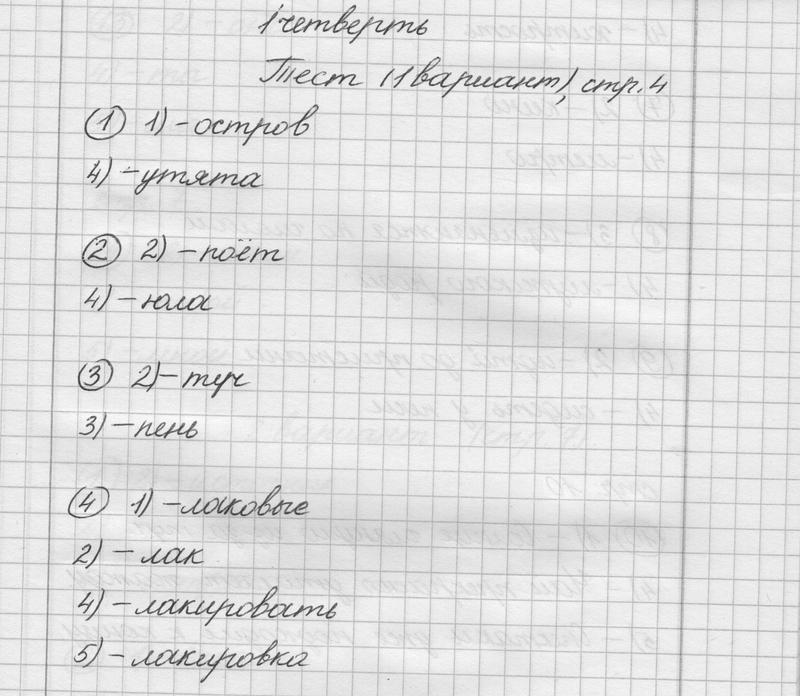 1 четверть
Тест (1 вариант), стр. 4
1 1) – остров
4) – утята
2 2) – поёт
4) – юла
3 2) – туч
3) – пень
4 1) – лаковые
2) – лак
4) – лакировать
5) – лакировка